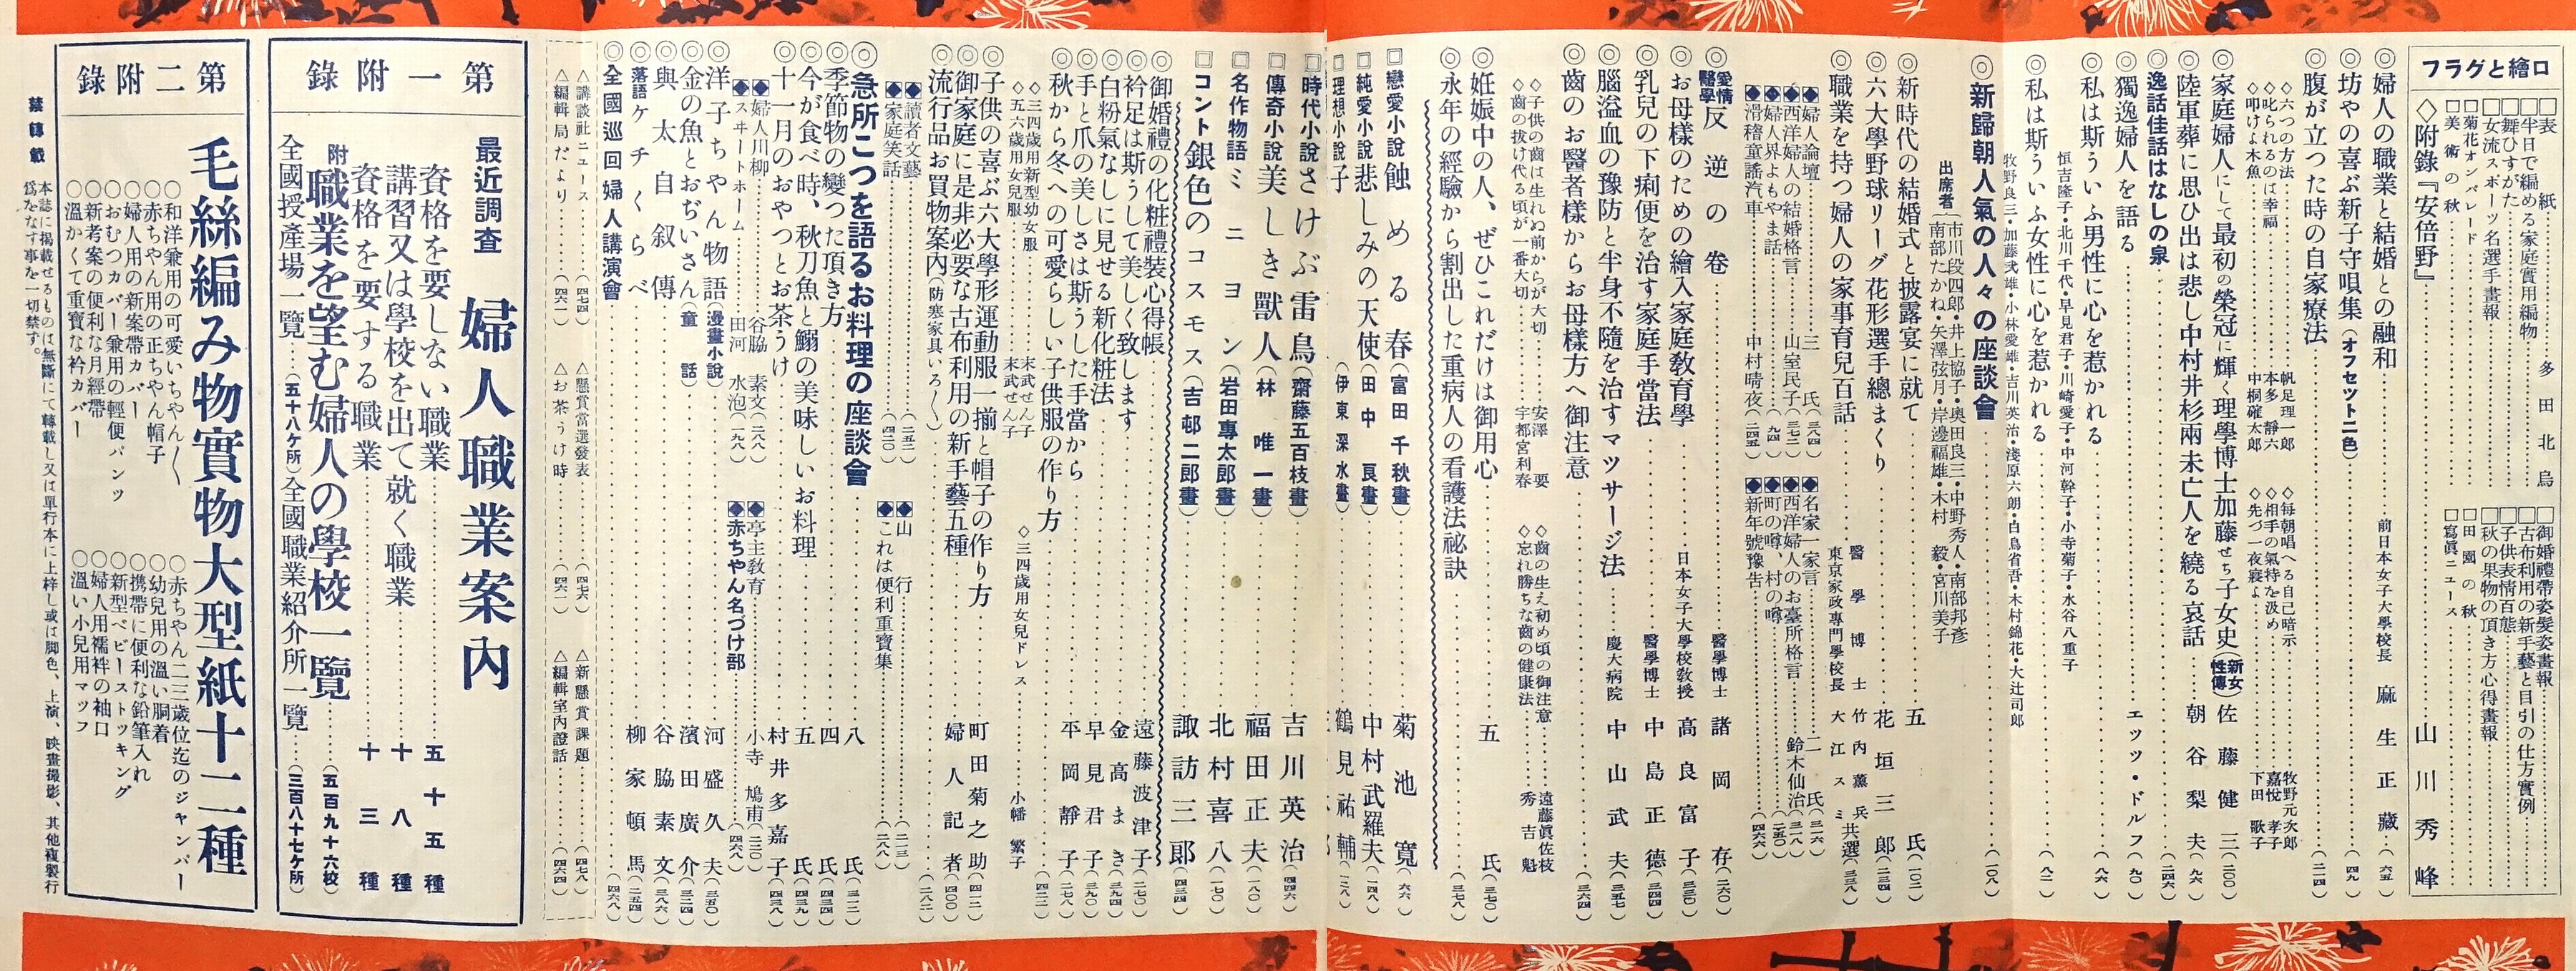 口繪とグラフ
□表紙 多田北烏
□半日で編める家庭實用編物
□舞ひすがた
□女流スポーツ名選手畫報
□菊花オンパレード
□美術の秋
□御婚禮帶姿髮姿畫報
□古布利用の新手藝と目引の仕方實例
□子供表情百態
□秋の果物の頂き方心得畫報
□田園の秋
□寫眞ニュース
◇附錄『安倍野』 山川秀峰
◎婦人の職業と結婚との融和 前日本女子大學校長 麻生正藏
◎坊やの喜ぶ新子守唄集(オフセット二色)(四九)
◎腹が立つた時の自家療法(二一四)
◇六つの方法 帆足理一郎
◇叱られるのは幸福 本多靜六
◇叩けよ木魚 中桐確太郎
◇每朝唱へる自己暗示 牧野元次郎
◇相手の氣持を汲め 嘉悅孝子
◇先づ一夜寢よ 下田歌子
◎家庭婦人にして最初の榮冠に輝く理學博士加藤せち子女史(新女性傳) 佐藤健三(二〇〇)
◎陸軍葬に思ひ出は悲し中村井杉兩未亡人を繞る哀話 朝谷梨夫(九六)
◎逸話佳話はなしの泉(二四六)
◎獨逸婦人を語る エッツ・ドルフ(九〇)
◎私は斯ういふ男性に心を惹かれる(八六)
恒吉隆子・北川千代・早見君子・川崎愛子・中河幹子・小寺菊子・水谷八重子
◎私は斯ういふ女性に心を惹かれる(八二)
牧野良三・加藤武雄・小林愛雄・吉川英治・淺原六朗・白鳥省吾・木村錦花・大辻司郎
◎新歸朝人氣の人々の座談會(一〇八)
出席者 市川段四郎・井上協子・奧田良三・中野秀人・南部邦彥
南部たかね・矢澤弦月・岸邊福雄・木村毅・宮川美子
◎新時代の結婚式と披露宴に就て 五氏(一〇二)
◎六大學野球リーグ花形選手總まくり 花垣三郎(二三四)
◎職業を持つ婦人の家事育兒百話 醫學博士 竹內薰兵 東京家政專門學校長 大江スミ 共選(三三八)
◆婦人論壇 三氏(三六四)
◆西洋婦人の結婚格言 山室民子(三七二)
◆婦人界よもやま話(九四)
◆滑稽童謠汽車 中村晴夜(二四五)
◆名家一家言 二氏(三一六)
◆西洋婦人のお臺所格言 鈴木仙治(三一八)
◆町の噂、村の噂(二五〇)
◆新年號豫吿(四六六)
◎愛情醫學 反逆の卷 醫學博士 諸岡存(二六〇)
◎お母樣のための繪入家庭敎育學 日本女子大學校敎授 高良富子(三三〇)
◎乳兒の下痢便を治す家庭手當法 醫學博士 中島正德(三四四)
◎腦溢血の豫防と半身不隨を治すマツサージ法 慶大病院 中山武夫(三五七)
◎齒のお醫者樣からお母樣方へ御注意(三六四)
◇子供の齒は生れぬ前からが大切 安澤要
◇齒の拔け代る頃が一番大切 宇都宮利春
◇齒の生え初め頃の御注意 遠藤眞佐枝
◇忘れ勝ちな齒の健康法 秀吉魁
◎妊娠中の人、ぜひこれだけは御用心 五氏(三七〇)
◎永年の經驗から割出した重病人の看護法祕訣(三七八)
□戀愛小說 蝕める春(富田千秋畫) 菊池寬(六六)
□純愛小說 悲しみの天使(田中良畫) 中村武羅夫(一四八)
□理想小說 子 (伊東深水畫) 鶴見祐輔(一三八)
□時代小說 さけぶ雷鳥(齋藤五百枝畫) 吉川英治(四四六)
□傳奇小說 美しき獸人(林唯一畫) 福田正夫(一八〇)
□名作物語 ミニヨン(岩田專太郎畫) 北村喜八(一七〇)
□コント 銀色のコスモス(吉邨二郎畫) 諏訪三郎(四三四)
◎御婚禮の化粧禮裝心得帳 遠藤波津子(二七〇)
◎衿足は斯うして美しく致します 金高まき(三九四)
◎白粉氣なしに見せる新化粧法 早見君子(三九〇)
◎手と爪の美しさは斯うした手當から 平岡靜子(二七八)
◎秋から冬への可愛らしい子供服の作り方(四二二)
◇三四歲用新型幼女服 末武せん子
◇五六歲用女兒服 末武せん子
◇三四歲用女兒ドレス 小幡繁子
◎子供の喜ぶ六大學形運動服一揃と帽子の作り方 町田菊之助(四一二)
◎御家庭に是非必要な古布利用の新手藝五種 婦人記者(四〇〇)
◎流行品お買物案內(防寒家具いろ〱)(二八二)
◆讀者文藝(二五二)
◆家庭笑話(四二〇)
◆山行(二一三)
◆これは便利重寶集(二八八)
◎急所こつを語るお料理の座談會 八氏(三一二)
◎季節物の變つた頂き方 四氏(四三四)
◎今が食べ時、秋刀魚と鰯の美味しいお料理 五氏(四三九)
◎十一月のおやつとお茶うけ 村井多嘉子(四三八)
◆婦人川柳 谷脇素文(二八八)
◆スヰートホーム 田河水泡(一九八)
◆亭主敎育 小寺鳩甫(二三〇)
◆赤ちやん名づけ部(四六八)
◎洋子ちやん物語(漫畫小說) 河盛久夫(三五〇)
◎金の魚とおぢいさん(童話) 濱田廣介(三二四)
◎與太自叙傳 谷脇素文(三八六)
◎落語 ケチくらべ 柳家頓馬(二五四)
◎全國巡回婦人講演會(四六八)
△講談社ニュース(四七四)
△編輯局だより(四六一)
△懸賞當選發表(四七六)
△お茶うけ時(四六一)
△新懸賞課題(四七八)
△編輯室內證話(四六四)
第一附錄
最近調査 婦人職業案內
資格を要しない職業 五十五種
講習又は學校を出て就く職業 十八種
資格を要する職業 十三種
附 職業を望む婦人の學校一覽(五百九十六校)
全國授產場一覽(五十八ケ所)全國職業紹介所一覽(三百八十七ケ所)
第二附錄
毛絲編み物實物大型紙十二種
○和洋兼用の可愛いちやん〱
○赤ちやん用の正ちやん帽子
○婦人用の新案帶カバー
○おむつカバー兼用の輕便パンツ
○新考案の便利な月經帶
○溫かくて重寶な衿カバー
○赤ちやん二三歲位迄のジャンパー
○幼兒用の溫い胴着
○携帶に便利な鉛筆入れ
○新型ベビーストッキング
○婦人用襦袢の袖口
○溫い小兒用マッフ
禁轉載 本誌に揭載せるものは無斷にて轉載し又は單行本に上梓し或は脚色、上演、映畫撮影、其他複製行爲をなす事を一切禁ず。